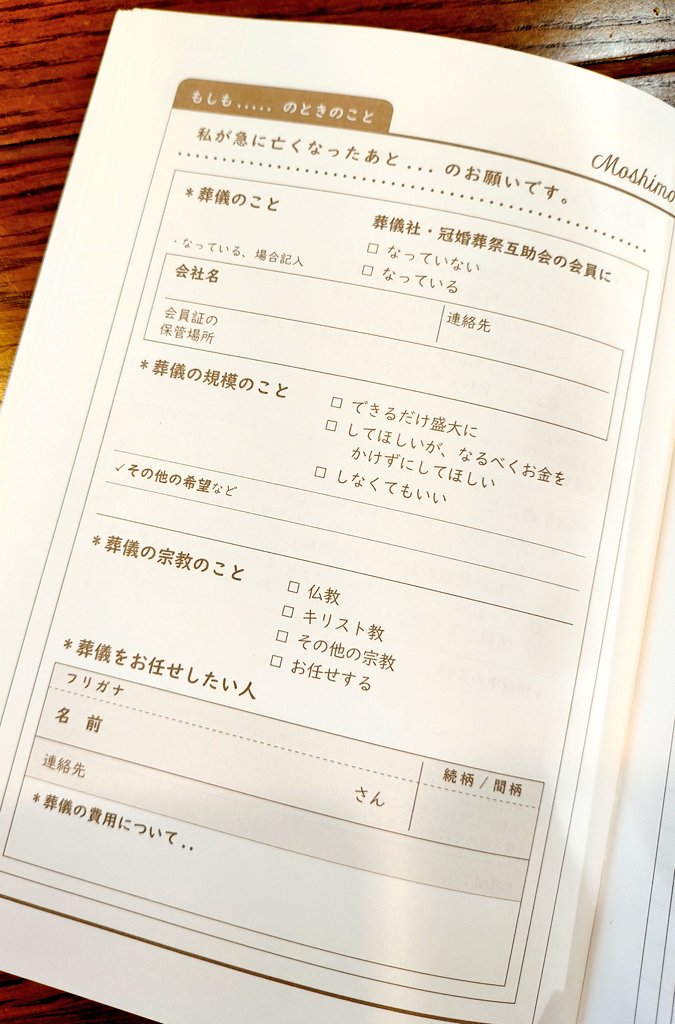 もしも..... のときのこと
Moshimo
私が急に亡くなったあと... のお願いです。
＊葬儀のこと
葬儀社・冠婚葬祭互助会の会員に
□ なっていない
□ なっている
・なっている、場合記入
会社名
連絡先
会員証の
保管場所
＊葬儀の規模のこと
□ できるだけ盛大に
□ してほしいが、なるべくお金を
かけずにしてほしい
□ しなくてもいい
✓その他の希望など
＊葬儀の宗教のこと
□ 仏教
□ キリスト教
□ その他の宗教
□ お任せする
＊葬儀をお任せしたい人
フリガナ
名 前
さん
続柄 / 間柄
連絡先
＊葬儀の費用について..